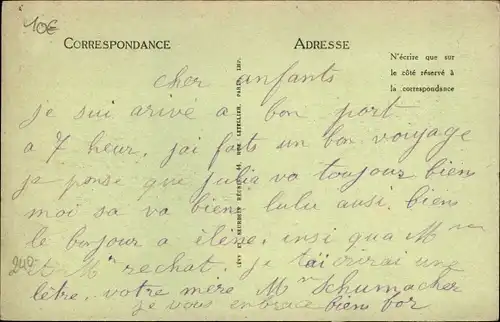 10€
CORRESPONDANCE
ADRESSE
N'écrire que sur
le côté réservé à
la correspondance
LÉVY ET NEURDEIN RÉUNIS, 44, RUE LETELLIER, PARIS, IMP.
cher anfants
je sui arivé a bon port
a 7 heur, jai faits un bon voiyage
je panse que julia va toujour biens
moi sa va biens lulu ausi, biens
le bonjour a élène, insi qua Mme
et Mr rechat, je tai crirai une
lètre, votre mère Mme Schumacher
je vous enbrace biens for